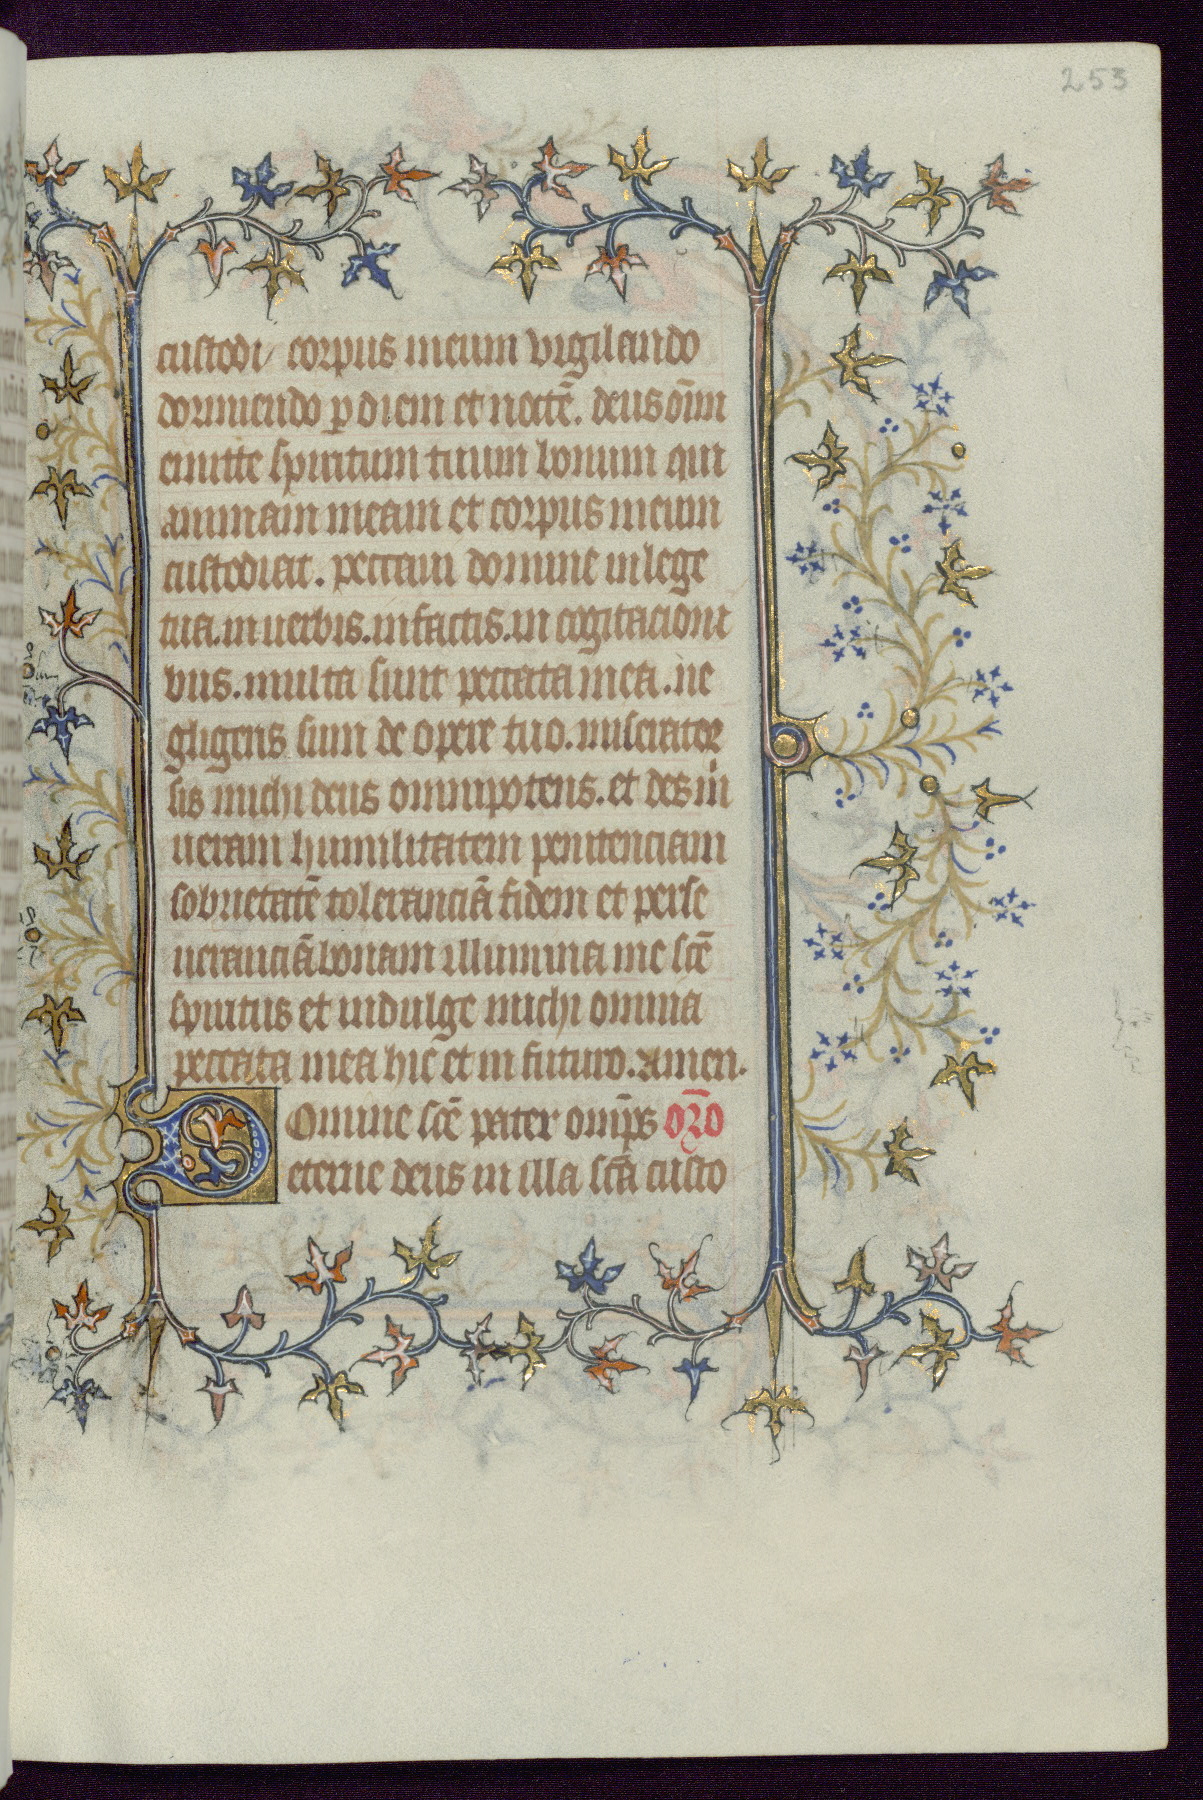 253
custodi / corpus meum vigilando
dormiendo p̲ diem et noctē. deus oīm
emitte spiritum tuum bonum qui
animam meam et corpus meum
custodiat. peccaui domine in lege
tua. in uerbis. in factis. in cogitacioni
bus. multa sunt peccata mea. ne
gligens sum de opere tuo. miserator
sis michi deus omnipotens. et des m̍
ueram humilitatem penitenciam
sobrietatē toleranciā fidem et perse
ueranciā bonam illumina me scē
spiritus et indulge michi omnia
peccata mea hic et in futuro. Amen.
Domine scē pater omp̄s or̄o
eterne deus in illa scā custo